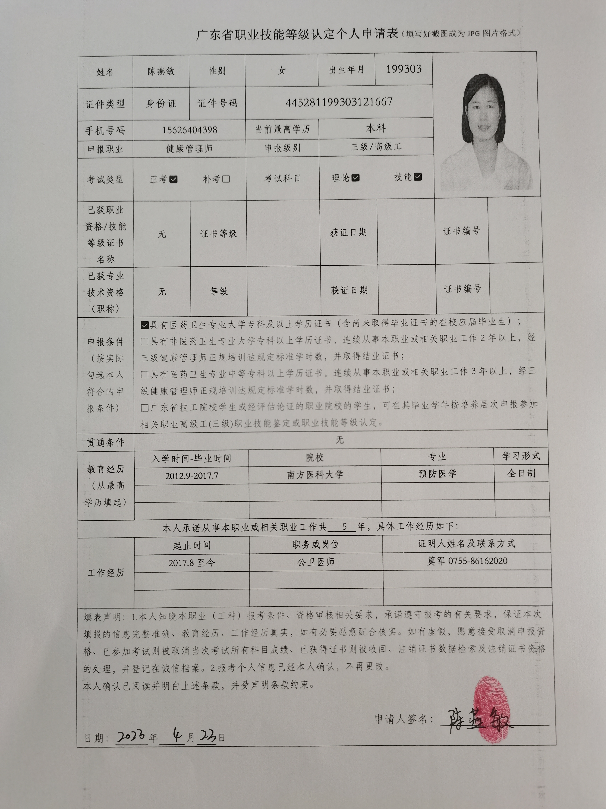 广东省职业技能等级认定个人申请表(填写好截图成为 JPG 图片格式)
姓名 陈燕敏 性别 女 出生年月 199303
证件类型 身份证 证件号码 445281199303121667
手机号码 15626404398 当前最高学历 本科
申报职业 健康管理师 申报级别 三级/高级工
考试类型 正考☑ 补考□ 考试科目 理论☑ 技能☑
已获职业
资格/技能 无 证书等级 获证日期 证书编号
等级证书
名称
已获专业
技术资格 无 等级 获证日期 证书编号
(职称)
☑具有医药卫生专业大学专科及以上学历证书(含尚未取得毕业证书的在校应届毕业生);
申报条件 □具有非医药卫生专业大学专科以上学历证书,连续从事本职业或相关职业工作2年以上,经
(按实际 三级健康管理师正规培训达规定标准学时数,并取得结业证书;
勾选本人 □具有医药卫生专业中等专科以上学历证书,连续从事本职业或相关职业工作3年以上,经三
符合的申 级健康管理师正规培训达规定标准学时数,并取得结业证书;
报条件) □广东省技工院校学生或经评估论证的职业院校的学生,可在其毕业学年按培养层次申报参加
相关职业高级工(三级)职业技能鉴定或职业技能等级认定。
贯通条件 无
教育经历 入学时间-毕业时间 院校 专业 学习形式
(从最高 2012.9-2017.7 南方医科大学 预防医学 全日制
学历填起)
本人承诺从事本职业或相关职业工作共 5 年,具体工作经历如下:
工作经历 起止时间 职务或岗位 证明人姓名及联系方式
2017.8 至今 公卫医师 0755-86162020
填表声明:1.本人知悉本职业(工种)报考条件、资格审核相关要求,承诺遵守报考的有关要求,保证本次
填报的信息完整准确、教育经历、工作经历真实,如有必要愿意配合核实。如有虚假,愿意接受取消申报资
格、已参加考试则被取消当次考试所有科目成绩、已获得证书则被收回、注销证书数据检索及注销证书资格
的处理,并登记在诚信档案。2.报考个人信息已经本人确认,不再更改。
本人确认已阅读并明白上述条款,并受声明条款约束。
申请人签名: 陈燕敏
日期: 2023 年 4 月 23 日